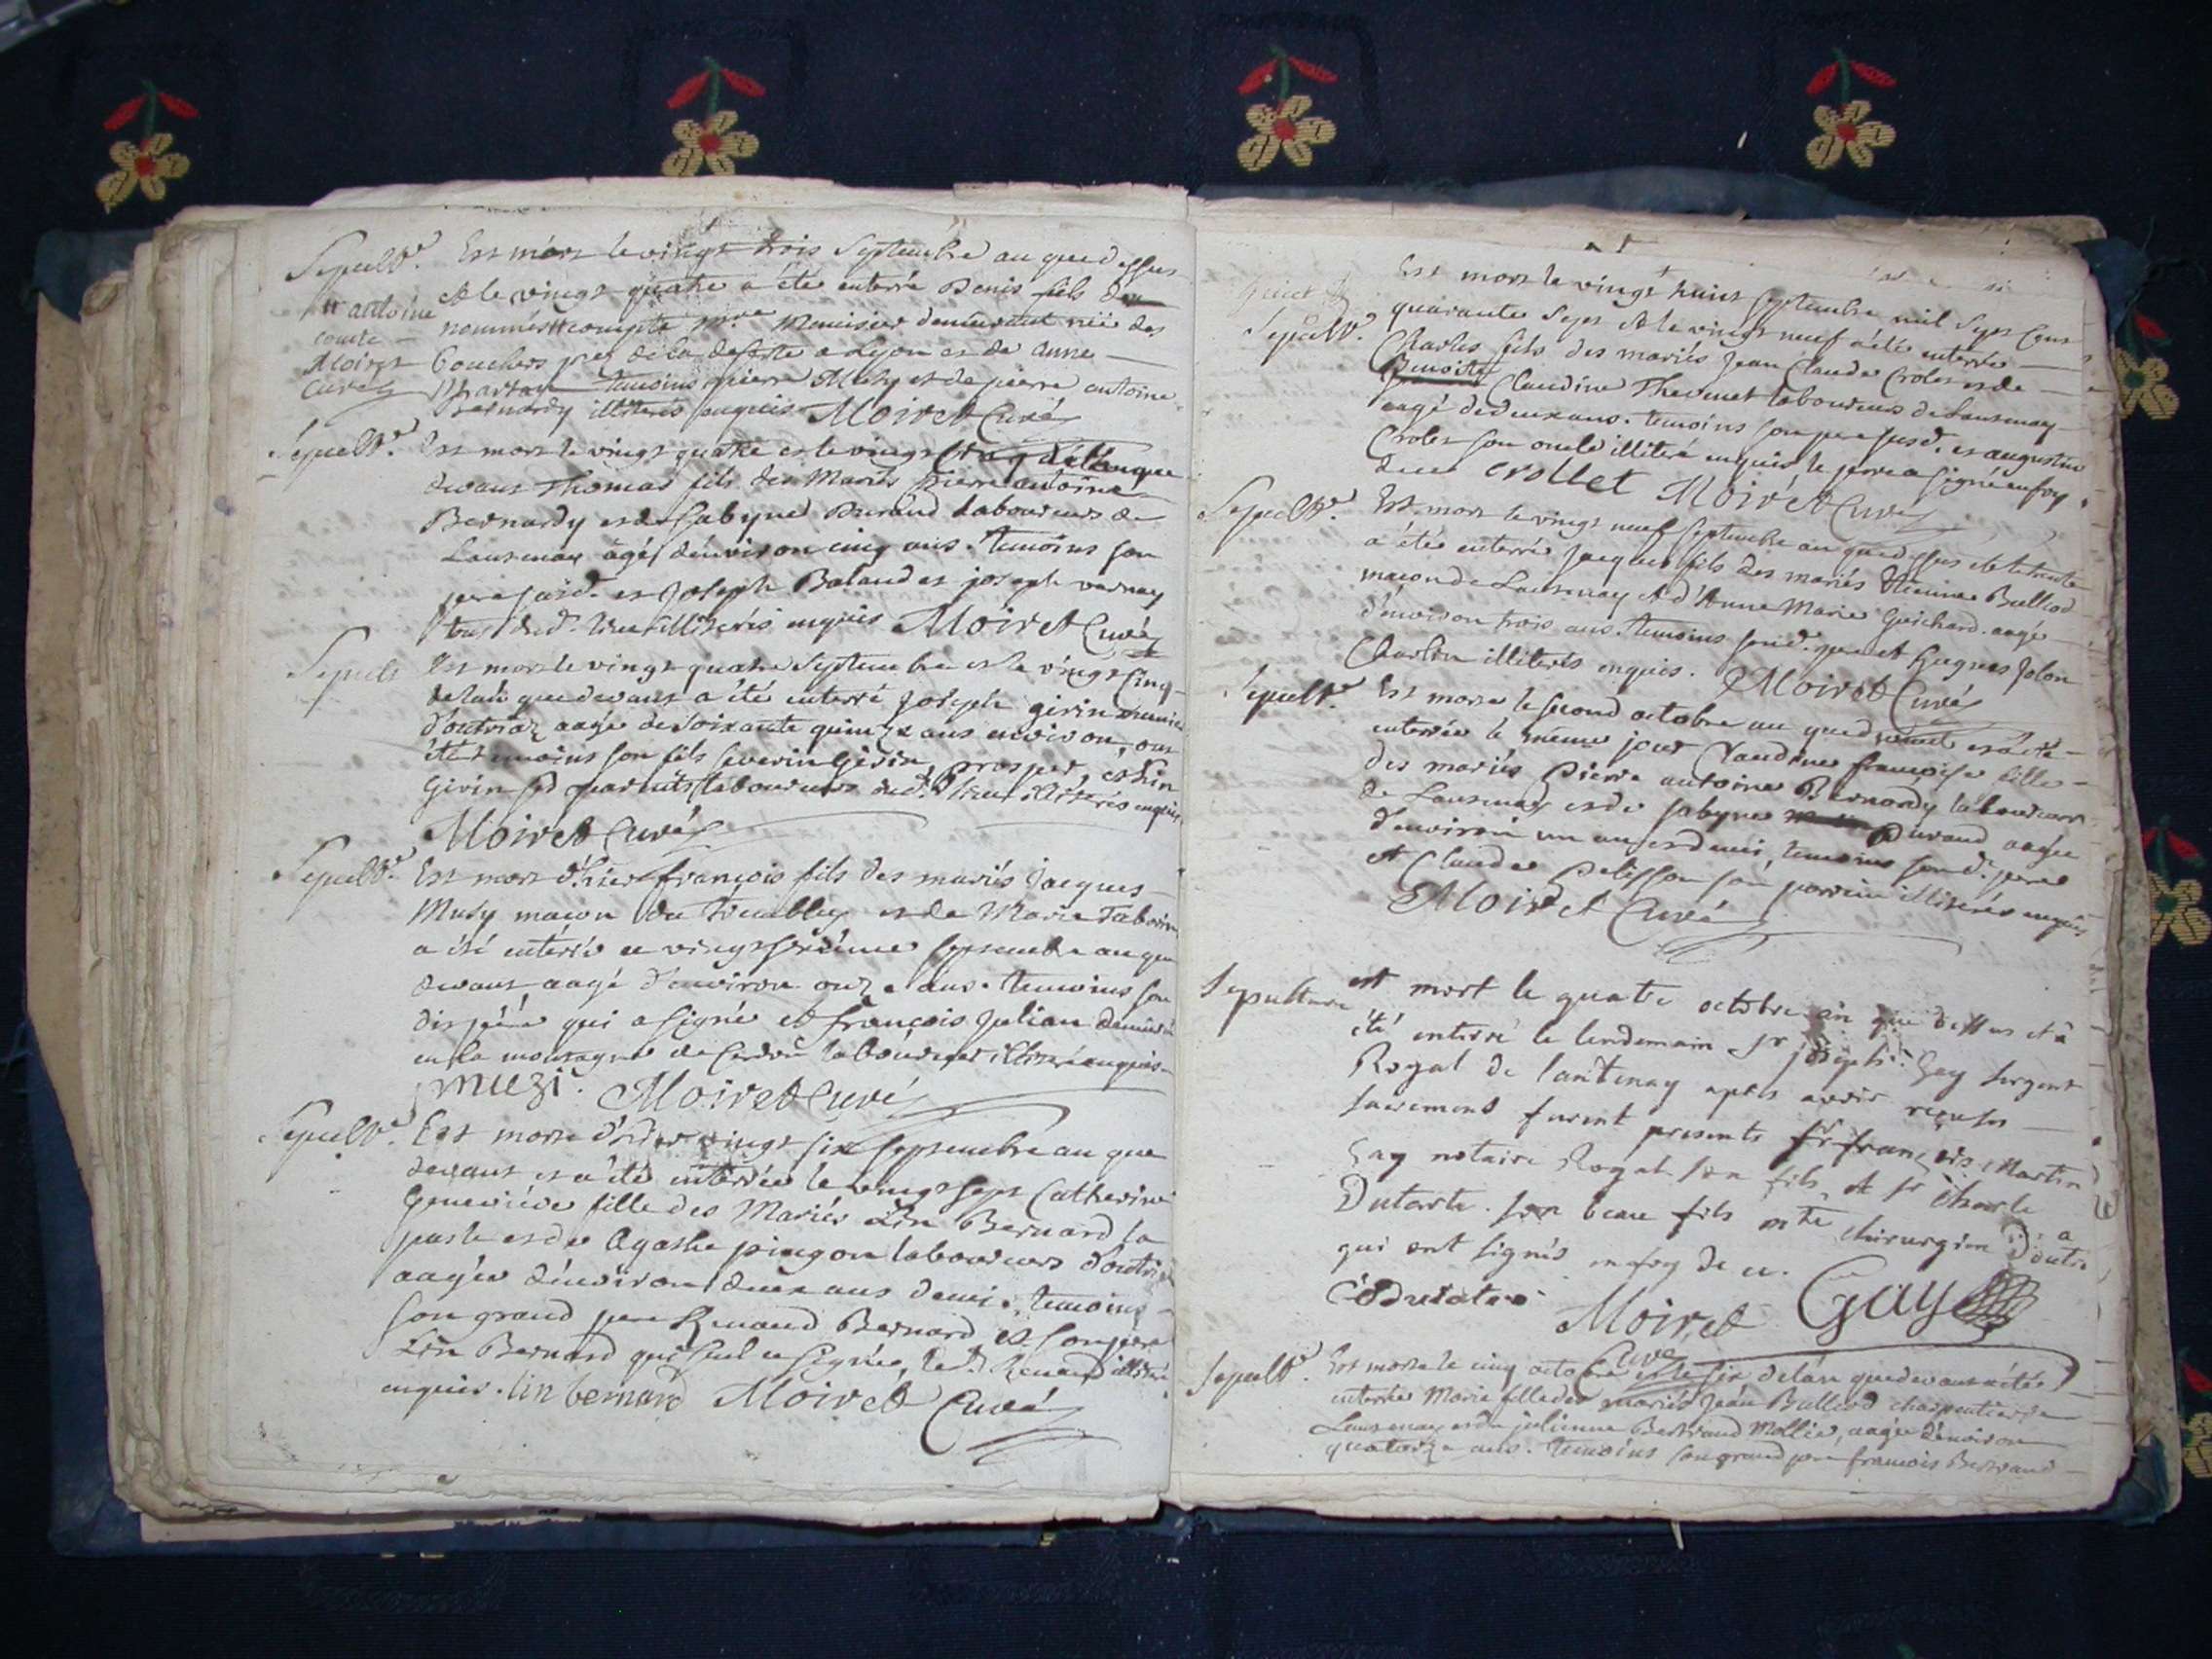 Sepult.e Est mort le vingt trois Septembre an que dessus
# antoine et le vingt quatre a été enterré Denis fils des
comte nommés # compte m.re Menuisier demeurant rüe des
Moiret Bouchers près de la deserte a Lyon et de Anne
Curé temoins pierre Musy et de pierre antoine
Bernardy illiterés enquis Moiret Curé
Sepult.e Est mort le vingt quatre et le vingt cinq de l'an que
devant Thomas fils des Mariés Pierre antoine
Bernardy et de Sabyne Durand Laboureurs de
Lantenay âgé d'environ cinq ans. temoins son
pere susd. et Joseph Baland et joseph varnay
tous dud. lieu illiterés enquis Moiret Curé
Sepult Est mort le vingt quatre Septembre et le vingt Cinq
de l'an que devant a été enterré Joseph girin
d'outriaz aagé de soixante quinze ans environ, ont
été temoins son fils severin Girin, prosper, et Lin
Girin ses parents laboureurs dud. lieu illiterés enquis
Moiret Curé
Sepult.e Est mort d'hier françois fils des mariés Jacques
Musy maçon du Trembley et de Marie Tabouret
a été enterré ce vingt sixième septembre an que
devant aagé d'environ onze ans. temoins son
dit père qui a signé et françois Julian demeurant
en la montagne de Cerdon laboureur illiteré enquis
muzi. Moiret Curé
Sepult.e Est morte d'hier vingt six septembre an que
devant et a été enterrée le vingt sept Catherine
Geneviève fille des Mariés Lin Bernard la
paste et de Agathe pingon laboureurs d'outriaz
aagée d'environ deux ans demi. temoins
son grand pere Renaud Bernard et son pere
Lin Bernard qui seul a signé, led. Renaud illiteré
enquis. lin bernard Moiret Curé
Est mort le vingt huit septembre mil sept cent
Sepult.e quarante sept et le vingt neuf a été enterré
Charles fils des mariés Jean Claude Crolet et de
Benoite Claudine Thevenet laboureurs de Lantenay
aagé de deux ans. temoins son pere susd. et augustin
Crolet son oncle illiteré enquis le pere a signé en foy
de ce crollet Moiret Curé
Sepult.e Est mort le vingt neuf septembre an que dessus et le trente
a été enterré jacques fils des mariés Etienne Balliod
maçon de Lantenay et d'Anne Marie Guichard. aagé
d'environ trois ans. temoins sond. pere et Hugues Jolon
Charlin illiterés enquis. Moiret Curé
Sepult.e Est morte le second octobre an que devant et a été
enterrée le meme jour Claudine françoise fille
des mariés Pierre antoine Bernardy laboureurs
de Lantenay et de Sabyne Durand aagée
d'environ un an et demi, temoins sond. pere
et Claude pelisson son parrain illiterés enquis
Moiret Curé
Sepulture est mort le quatre octobre an que dessus et a
été enterré le lendemain sr joseph Gay sergent
Royal de lantenay apres avoir reçu ses
sacrements furent presents sr françois Martin
Gay notaire Royal son fils, et sr Charle
Dutarte son beau fils m.tre chirurgien D'outriaz
qui ont signés en foy de ce.
C Dutartre Moiret Gay
Curé
Sepult.e Est morte le cinq octobre et le six de l'an que devant a été
enterrée Marie fille des mariés Jean Balliod charpentier de
Lantenay et de julienne Bertrand Mollie, aagée d'environ
quatorze ans. temoins son grand pere françois Bertrand